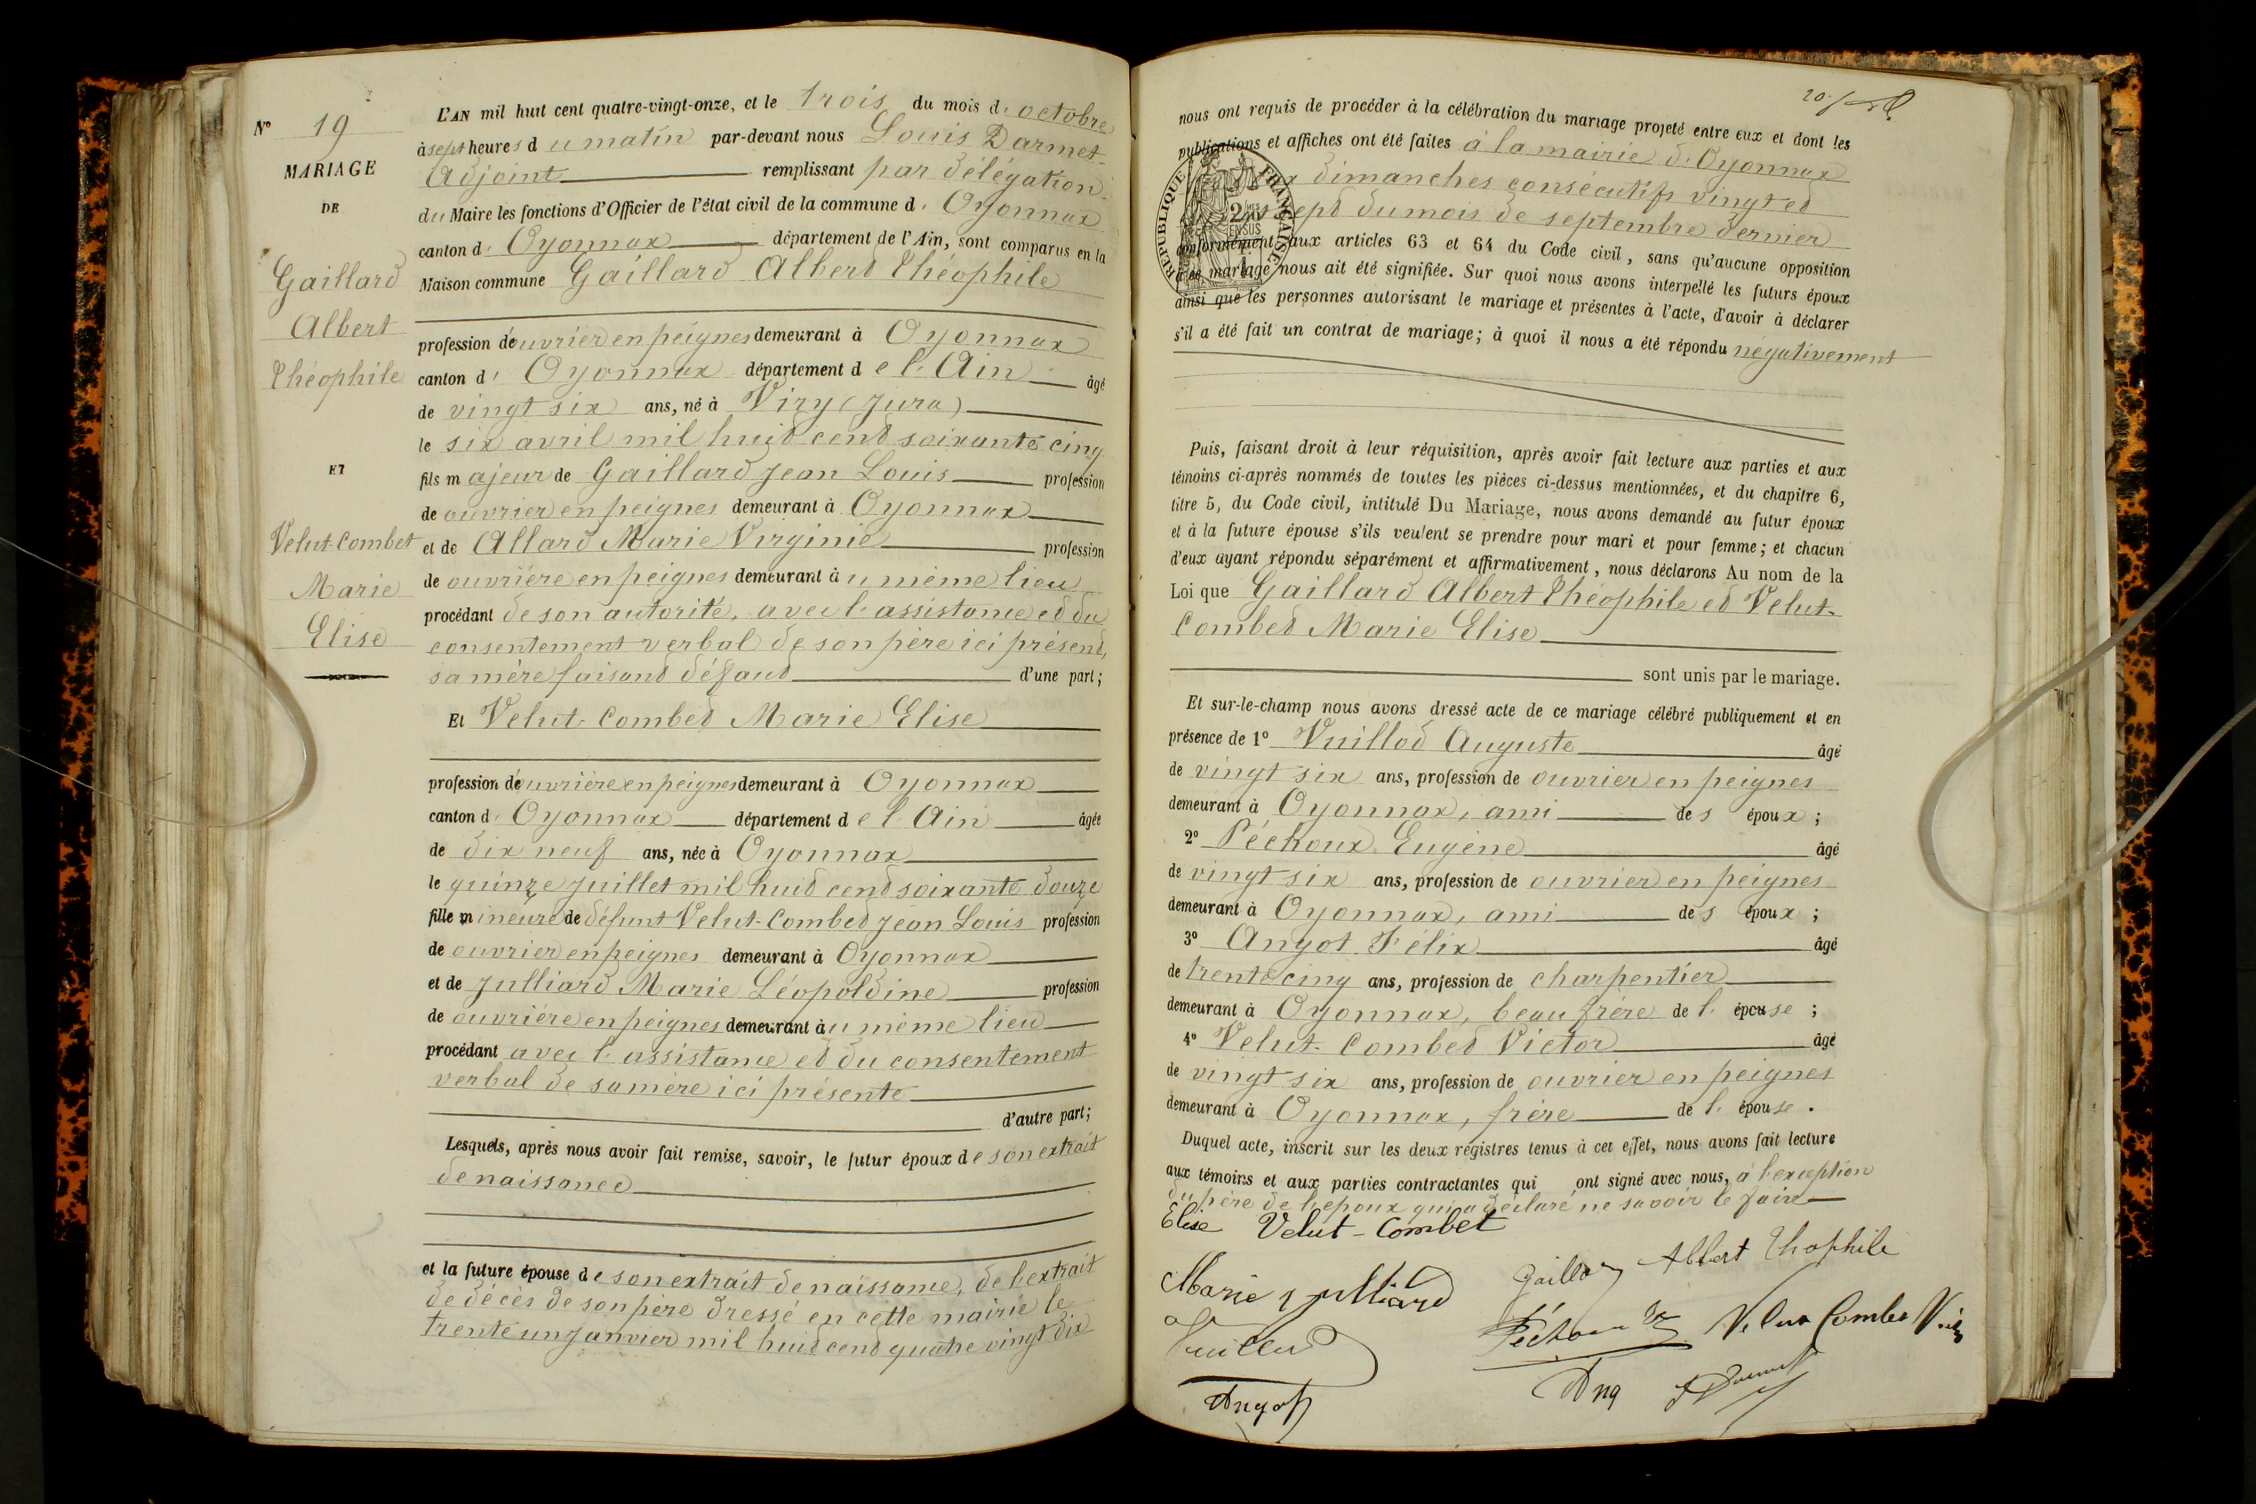 N° 19
MARIAGE
DE
Gaillard
Albert
Théophile
ET
Velut-Combet
Marie
Elise
L'AN mil huit cent quatre-vingt-onze, et le trois du mois d'octobre
à sept heures du matin par-devant nous Louis Darmet
Adjoint remplissant par délégation
du Maire les fonctions d'Officier de l'état civil de la commune d'Oyonnax
canton d'Oyonnax département de l'Ain, sont comparus en la
Maison commune Gaillard Albert Théophile
profession d'ouvrier en peignes demeurant à Oyonnax
canton d'Oyonnax département de l'Ain âgé
de vingt six ans, né à Viry (Jura)
le six avril mil huit cent soixante cinq
fils majeur de Gaillard Jean Louis profession
de ouvrier en peignes demeurant à Oyonnax
et de Allard Marie Virginie profession
de ouvrière en peignes demeurant au même lieu
procédant de son autorité, avec l'assistance et du
consentement verbal de son père ici présent,
sa mère faisant défaut d'une part;
Et Velut-Combet Marie Elise
profession d'ouvrière en peignes demeurant à Oyonnax
canton d'Oyonnax département de l'Ain âgée
de dix neuf ans, née à Oyonnax
le quinze juillet mil huit cent soixante douze
fille mineure de défunt Velut-Combet Jean Louis profession
de ouvrier en peignes demeurant à Oyonnax
et de Julliard Marie Léopoldine profession
de ouvrière en peignes demeurant au même lieu
procédant avec l'assistance et du consentement
verbal de sa mère ici présente
d'autre part;
Lesquels, après nous avoir fait remise, savoir, le futur époux de son extrait
de naissance
et la future épouse de son extrait de naissance, de l'extrait
de décès de son père dressé en cette mairie le
trente un janvier mil huit cent quatre vingt dix
20
nous ont requis de procéder à la célébration du mariage projeté entre eux et dont les
publications et affiches ont été faites à la mairie d'Oyonnax
dimanches consécutifs vingt et
sept du mois de septembre dernier
REPUBLIQUE FRANÇAISE
conformément aux articles 63 et 64 du Code civil, sans qu'aucune opposition
à ce mariage nous ait été signifiée. Sur quoi nous avons interpellé les futurs époux
ainsi que les personnes autorisant le mariage et présentes à l'acte, d'avoir à déclarer
s'il a été fait un contrat de mariage; à quoi il nous a été répondu négativement
Puis, faisant droit à leur réquisition, après avoir fait lecture aux parties et aux
témoins ci-après nommés de toutes les pièces ci-dessus mentionnées, et du chapitre 6,
titre 5, du Code civil, intitulé Du Mariage, nous avons demandé au futur époux
et à la future épouse s'ils veulent se prendre pour mari et pour femme; et chacun
d'eux ayant répondu séparément et affirmativement, nous déclarons Au nom de la
Loi que Gaillard Albert Théophile et Velut-
Combet Marie Elise
sont unis par le mariage.
Et sur-le-champ nous avons dressé acte de ce mariage célébré publiquement et en
présence de 1° Vuillod Auguste âgé
de vingt six ans, profession de ouvrier en peignes
demeurant à Oyonnax, ami des époux;
2° Péchoux Eugène âgé
de vingt six ans, profession de ouvrier en peignes
demeurant à Oyonnax, ami des époux;
3° Angot Félix âgé
de trente cinq ans, profession de charpentier
demeurant à Oyonnax, beau frère de l'épouse;
4° Velut-Combet Victor âgé
de vingt six ans, profession de ouvrier en peignes
demeurant à Oyonnax, frère de l'épouse.
Duquel acte, inscrit sur les deux régistres tenus à cet effet, nous avons fait lecture
aux témoins et aux parties contractantes qui ont signé avec nous, à l'exception
du père de l'époux qui a déclaré ne savoir le faire
Elise Velut-Combet
Gaillard Albert Thophile
Marie Julliard
Péchoux Velut Combet
Angot